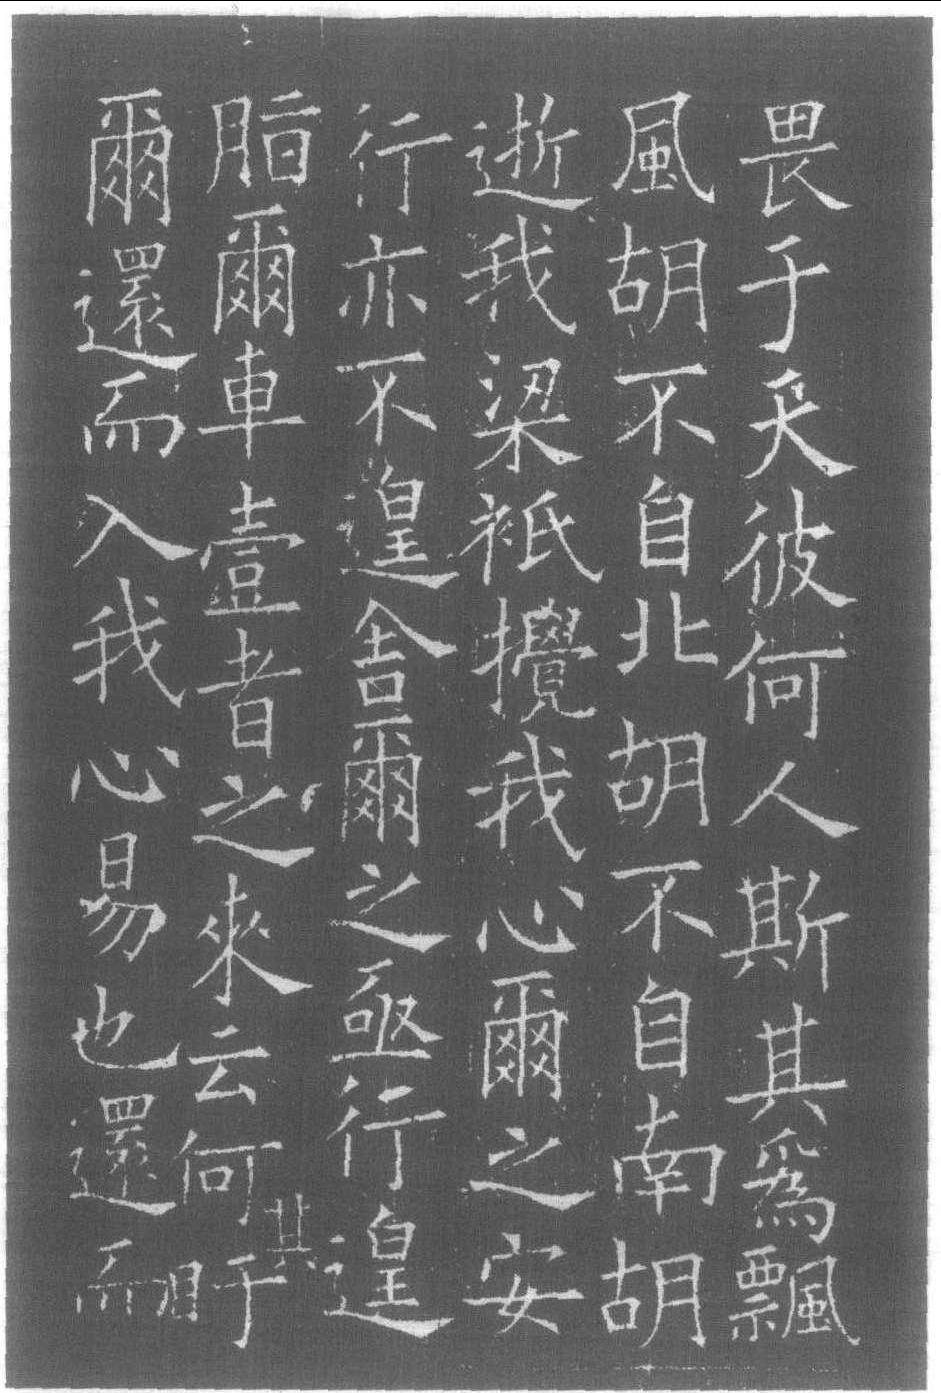 畏于天彼何人斯其為飄
風胡不自北胡不自南胡
逝我梁祇攪我心爾之安
行亦不遑舍爾之亟行遑
脂爾車壹者之來云何其盱
爾還而入我心易也還而